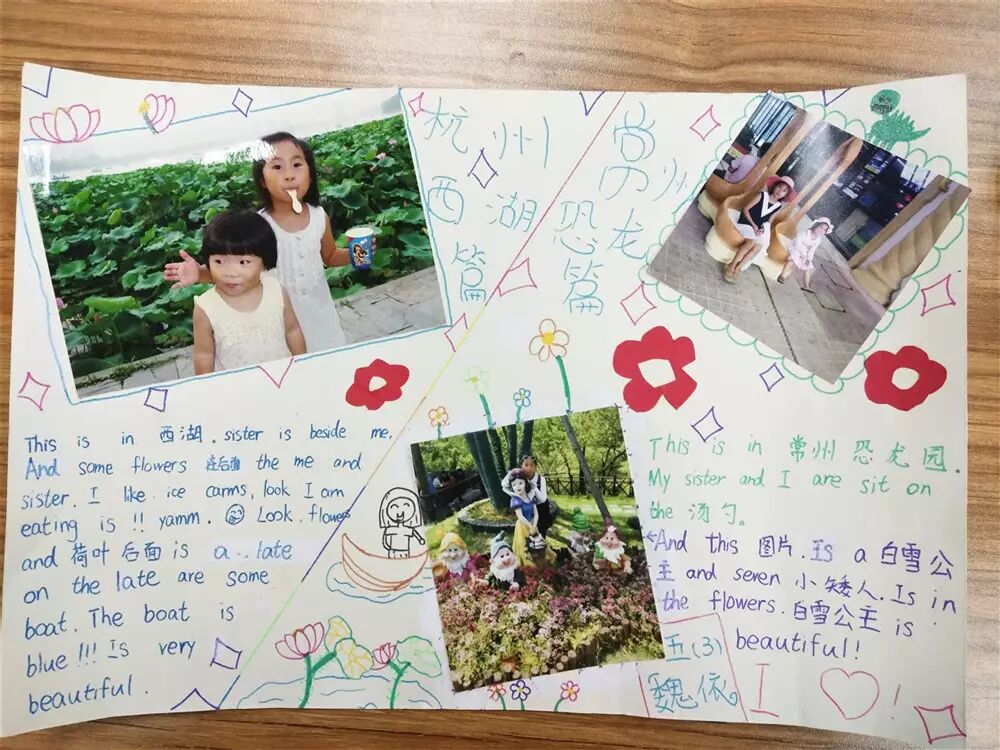 杭州
西湖
篇
常州
恐龙
篇
This is in 西湖. sister is beside me.
And some flowers 在后面 the me and
sister. I like ice carms, look I am
eating is !! yamm. Look. flowers
and 荷叶 后面 is a late
on the late are some
boat. The boat is
blue!!! Is very
beautiful.
This is in 常州 恐龙园.
My sister and I are sit on
the 汤勺。
And this 图片. Is a 白雪公
主 and seven 小矮人. Is in
the flowers. 白雪公主 is
beautiful!
五(3)
魏依
I !